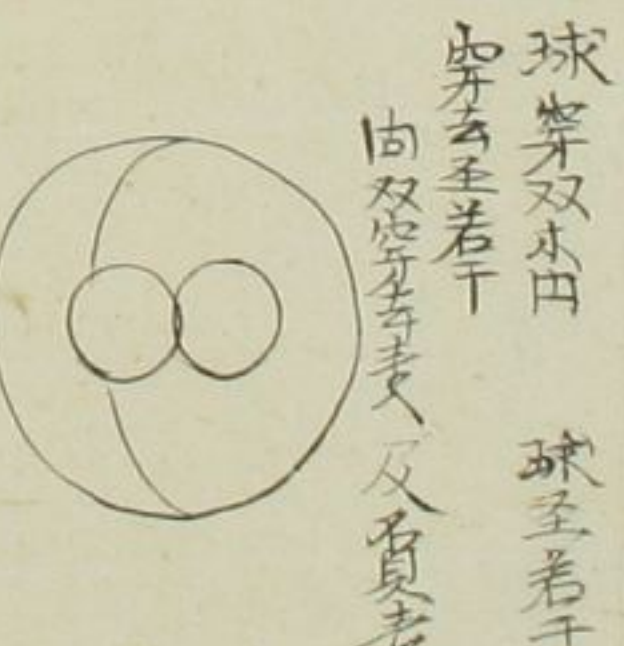 球穿双小円　球圣若干
穿去圣若干
問双穿去責及覔